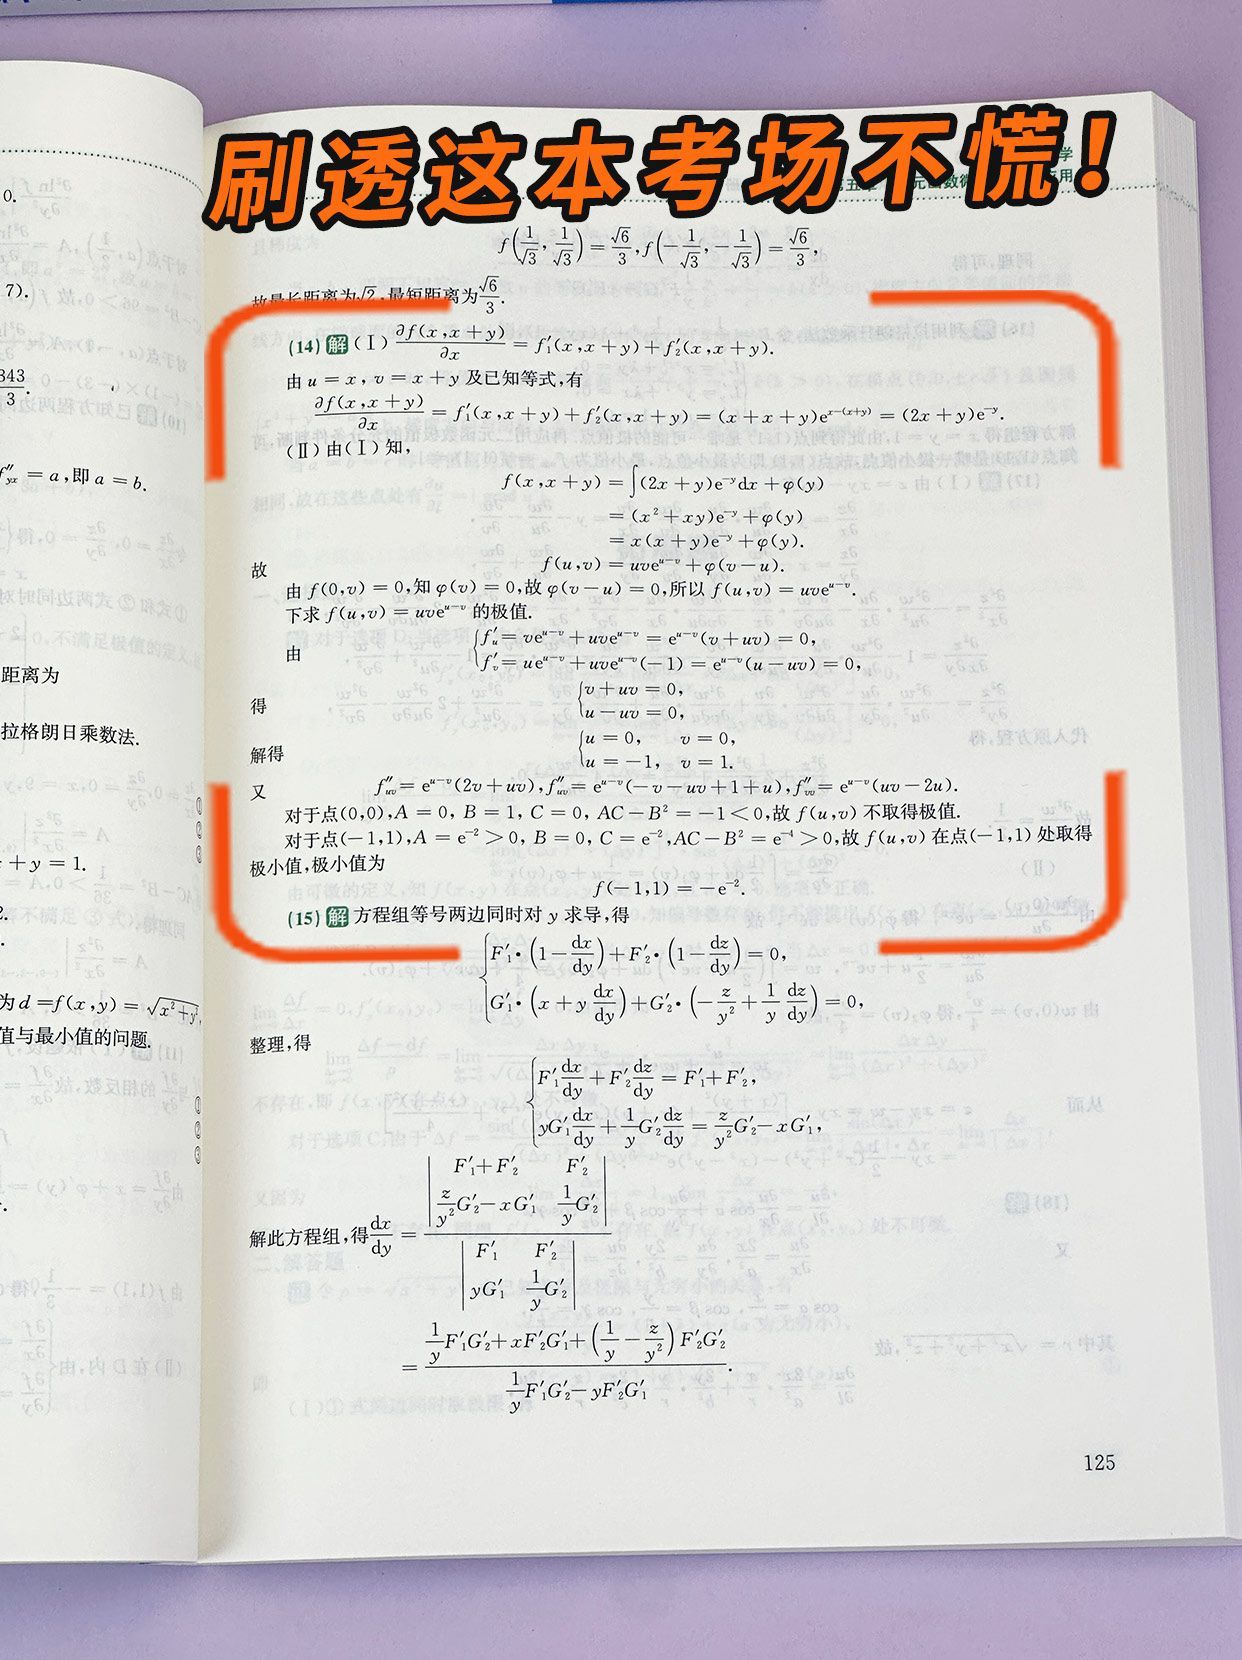 刷透这本考场不慌！
0.
7).
343/3.
f″yx = a,即 a = b.
距离为
拉格朗日乘数法.
x + y = 1.
2.
为 d = f(x,y) = √x²+y²,
值与最小值的问题.
f(1/√3, 1/√3) = √6/3, f(−1/√3, −1/√3) = √6/3,
故最长距离为√2,最短距离为√6/3.
(14) 解 (Ⅰ) ∂f(x,x+y)/∂x = f′₁(x,x+y)+f′₂(x,x+y).
由 u = x, v = x+y 及已知等式,有
∂f(x,x+y)/∂x = f′₁(x,x+y)+f′₂(x,x+y) = (x+x+y)e^{x−(x+y)} = (2x+y)e^{−y}.
(Ⅱ) 由(Ⅰ)知,
f(x,x+y) = ∫(2x+y)e^{−y}dx+φ(y)
= (x²+xy)e^{−y}+φ(y)
= x(x+y)e^{−y}+φ(y).
故 f(u,v) = uve^{u−v}+φ(v−u).
由 f(0,v) = 0,知 φ(v) = 0,故 φ(v−u) = 0,所以 f(u,v) = uve^{u−v}.
下求 f(u,v) = uve^{u−v} 的极值.
由 { f′u = ve^{u−v}+uve^{u−v} = e^{u−v}(v+uv) = 0,
f′v = ue^{u−v}+uve^{u−v}(−1) = e^{u−v}(u−uv) = 0,
得 { v+uv = 0,
u−uv = 0,
解得 { u = 0, v = 0,
u = −1, v = 1.
又 f″uu = e^{u−v}(2v+uv), f″uv = e^{u−v}(−v−uv+1+u), f″vv = e^{u−v}(uv−2u).
对于点(0,0),A = 0, B = 1, C = 0, AC−B² = −1 < 0,故 f(u,v) 不取得极值.
对于点(−1,1),A = e⁻² > 0, B = 0, C = e⁻², AC−B² = e⁻⁴ > 0,故 f(u,v) 在点(−1,1) 处取得
极小值,极小值为
f(−1,1) = −e⁻².
(15) 解 方程组等号两边同时对 y 求导,得
{ F′₁·(1−dx/dy)+F′₂·(1−dz/dy) = 0,
G′₁·(x+y dx/dy)+G′₂·(−z/y²+1/y dz/dy) = 0,
整理,得
{ F′₁dx/dy+F′₂dz/dy = F′₁+F′₂,
yG′₁dx/dy+1/y G′₂dz/dy = z/y² G′₂−xG′₁,
解此方程组,得 dx/dy = |F′₁+F′₂ F′₂; z/y² G′₂−xG′₁ 1/y G′₂| / |F′₁ F′₂; yG′₁ 1/y G′₂|
= (1/y F′₁G′₂+xF′₂G′₁+(1/y−z/y²)F′₂G′₂) / (1/y F′₁G′₂−yF′₂G′₁).
125